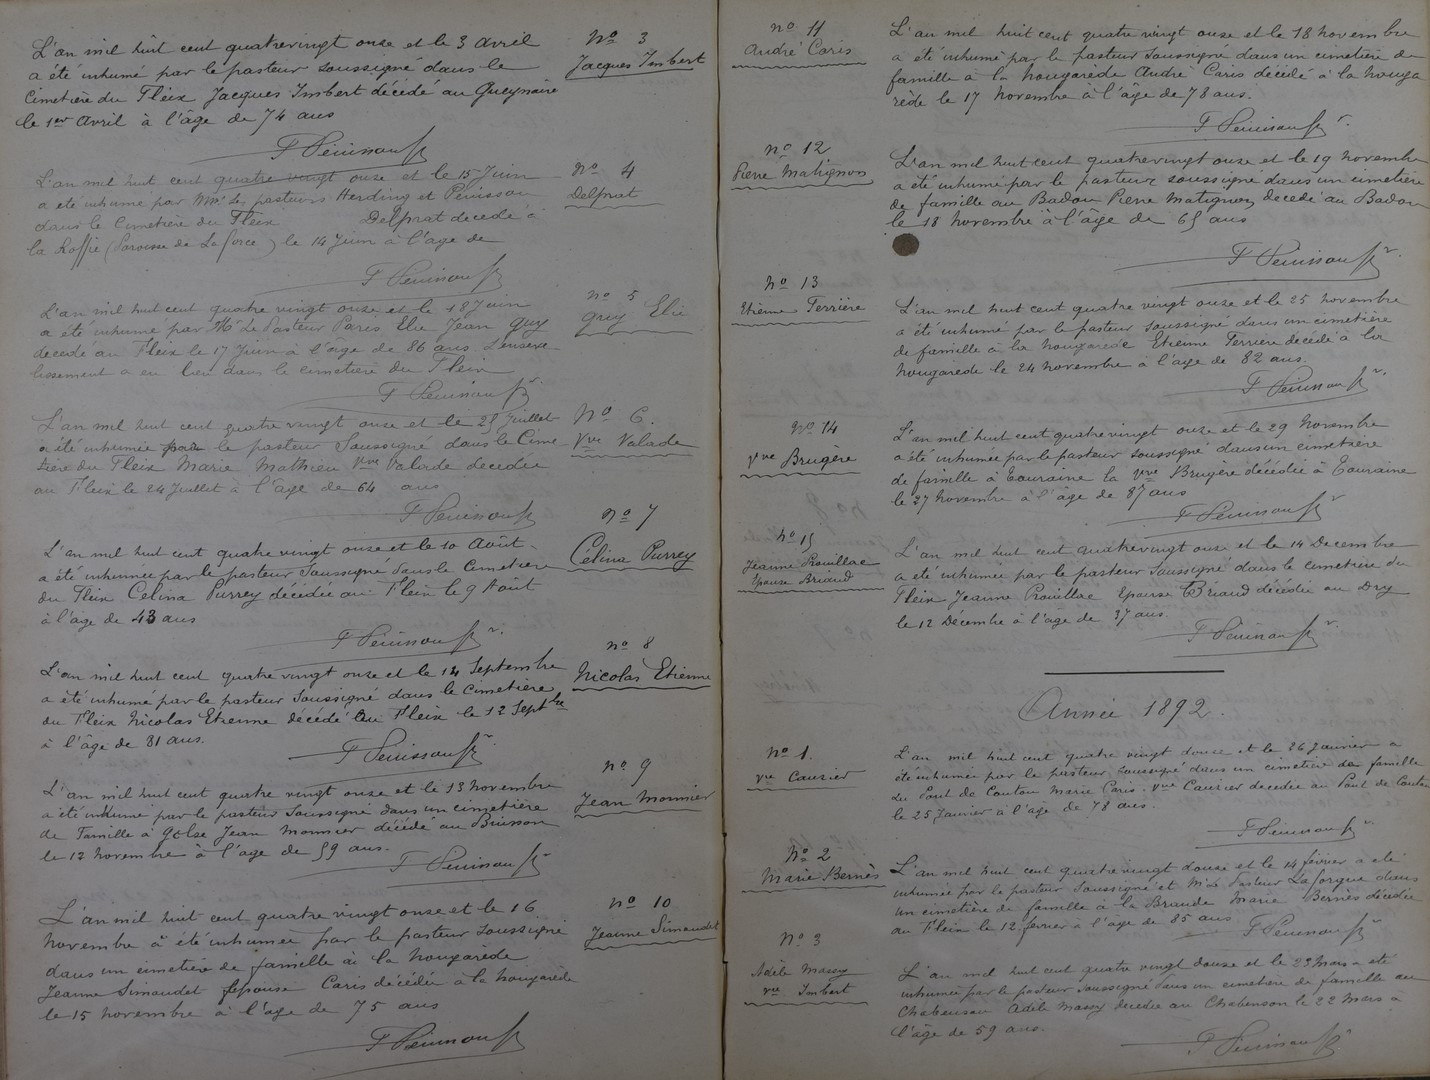 L'an mil huit cent quatrevingt onze et le 3 avril
a été inhumé par le pasteur soussigné dans le
Cimetière du Fleix Jacques Imbert décédé au Queynaire
le 1er Avril à l'âge de 74 ans
F Pénissou Pr
No 3
Jacques Imbert
L'an mil huit cent quatre vingt onze et le 15 Juin
a été inhumé par MM. les pasteurs Herding et Pénissou
dans le Cimetière du Fleix Delprat décédé à
la Roffie (Paroisse de La force) le 14 Juin à l'âge de
F Pénissou Pr
No 4
Delprat
L'an mil huit cent quatre vingt onze et le 18 Juin
a été inhumé par Mr Le Pasteur Paris Elie Jean Guy
décédé au Fleix le 17 Juin à l'âge de 86 ans L'enseve
lissement a eu lieu dans le cimetière du Fleix
F Pénissou Pr
no 5
Guy Elie
L'an mil huit cent quatre vingt onze et le 25 Juillet
a été inhumée par le pasteur Soussigné dans le Cime
tière du Fleix Marie Mathieu Vve Valade décédée
au Fleix le 24 Juillet à l'âge de 64 ans
F Pénissou Pr
No 6
Vve Valade
L'an mil huit cent quatre vingt onze et le 10 Août
a été inhumée par le pasteur Soussigné dans le Cimetière
du Fleix Célina Purrey décédée au Fleix le 9 Août
à l'âge de 43 ans
F Pénissou Pr
No 7
Célina Purrey
L'an mil huit cent quatre vingt onze et le 14 Septembre
a été inhumé par le pasteur Soussigné dans le cimetière
du Fleix Nicolas Etienne décédé au Fleix le 12 Septbre
à l'âge de 81 ans.
F Pénissou Pr
no 8
Nicolas Etienne
L'an mil huit cent quatre vingt onze et le 13 Novembre
a été inhumé par le pasteur Soussigné dans un cimetière
de famille à Jean Monnier décédé au Buisson
le 12 Novembre à l'âge de 59 ans.
F Pénissou Pr
no 9
Jean Monnier
L'an mil huit cent quatre vingt onze et le 16
Novembre a été inhumée par le pasteur soussigné
dans un cimetière de famille à la Nougarède
Jeanne Simaudet épouse Caris décédée à la Nougarède
le 15 Novembre à l'âge de 75 ans
F Pénissou Pr
no 10
Jeanne Simaudet
no 11
André Caris
L'an mil huit cent quatre vingt onze et le 18 novembre
a été inhumé par le pasteur soussigné dans un cimetière de
famille à la Nougarède André Caris décédé à la Nouga
rède le 17 Novembre à l'âge de 78 ans.
F Pénissou Pr
no 12
Pierre Matignon
L'an mil huit cent quatrevingt onze et le 19 Novembre
a été inhumé par le pasteur soussigné dans un cimetière
de famille au Badou Pierre Matignon décédé au Badou
le 18 Novembre à l'âge de 65 ans
F Pénissou Pr
no 13
Etienne Terrière
L'an mil huit cent quatre vingt onze et le 25 novembre
a été inhumé par le pasteur soussigné dans un cimetière
de famille à la Nougarède Etienne Terrière décédé à la
Nougarède le 24 novembre à l'âge de 82 ans.
F Pénissou Pr
No 14
Vve Brugère
L'an mil huit cent quatrevingt onze et le 29 Novembre
a été inhumée par le pasteur soussigné dans un cimetière
de famille à Touraine la Vve Brugère décédée à Touraine
le 27 Novembre à l'âge de 87 ans
F Pénissou Pr
No 15
Jeanne Prouillac
épouse Briaud
L'an mil huit cent quatrevingt onze et le 14 Décembre
a été inhumée par le pasteur Soussigné dans le cimetière du
Fleix Jeanne Prouillac Epouse Briaud décédée au Dry
le 12 Décembre à l'âge de 37 ans.
F Pénissou Pr
Année 1892.
No 1.
Vve Causier
L'an mil huit cent quatre vingt douze et le 26 Janvier a
été inhumée par le pasteur Soussigné dans un cimetière de famille
du Pont de Coutou Marie Caris. Vve Causier décédée au Pont de Coutou
le 25 Janvier à l'âge de 78 ans.
F Pénissou Pr
No 2
Marie Bernès
L'an mil huit cent quatrevingt douze et le 14 février a été
inhumée par le pasteur Soussigné et Mr Le Pasteur Laforgue dans
un cimetière de famille à la Braude Marie Bernès décédée
au Fleix le 12 février à l'âge de 85 ans
F Pénissou Pr
No 3
Adèle Massy
Vve Imbert
L'an mil huit cent quatre vingt douze et le 23 Mars a été
inhumée par le pasteur Soussigné dans un cimetière de famille au
Chabenson Adèle Massy décédée au Chabenson le 22 Mars à
l'âge de 59 ans.
F Pénissou Pr